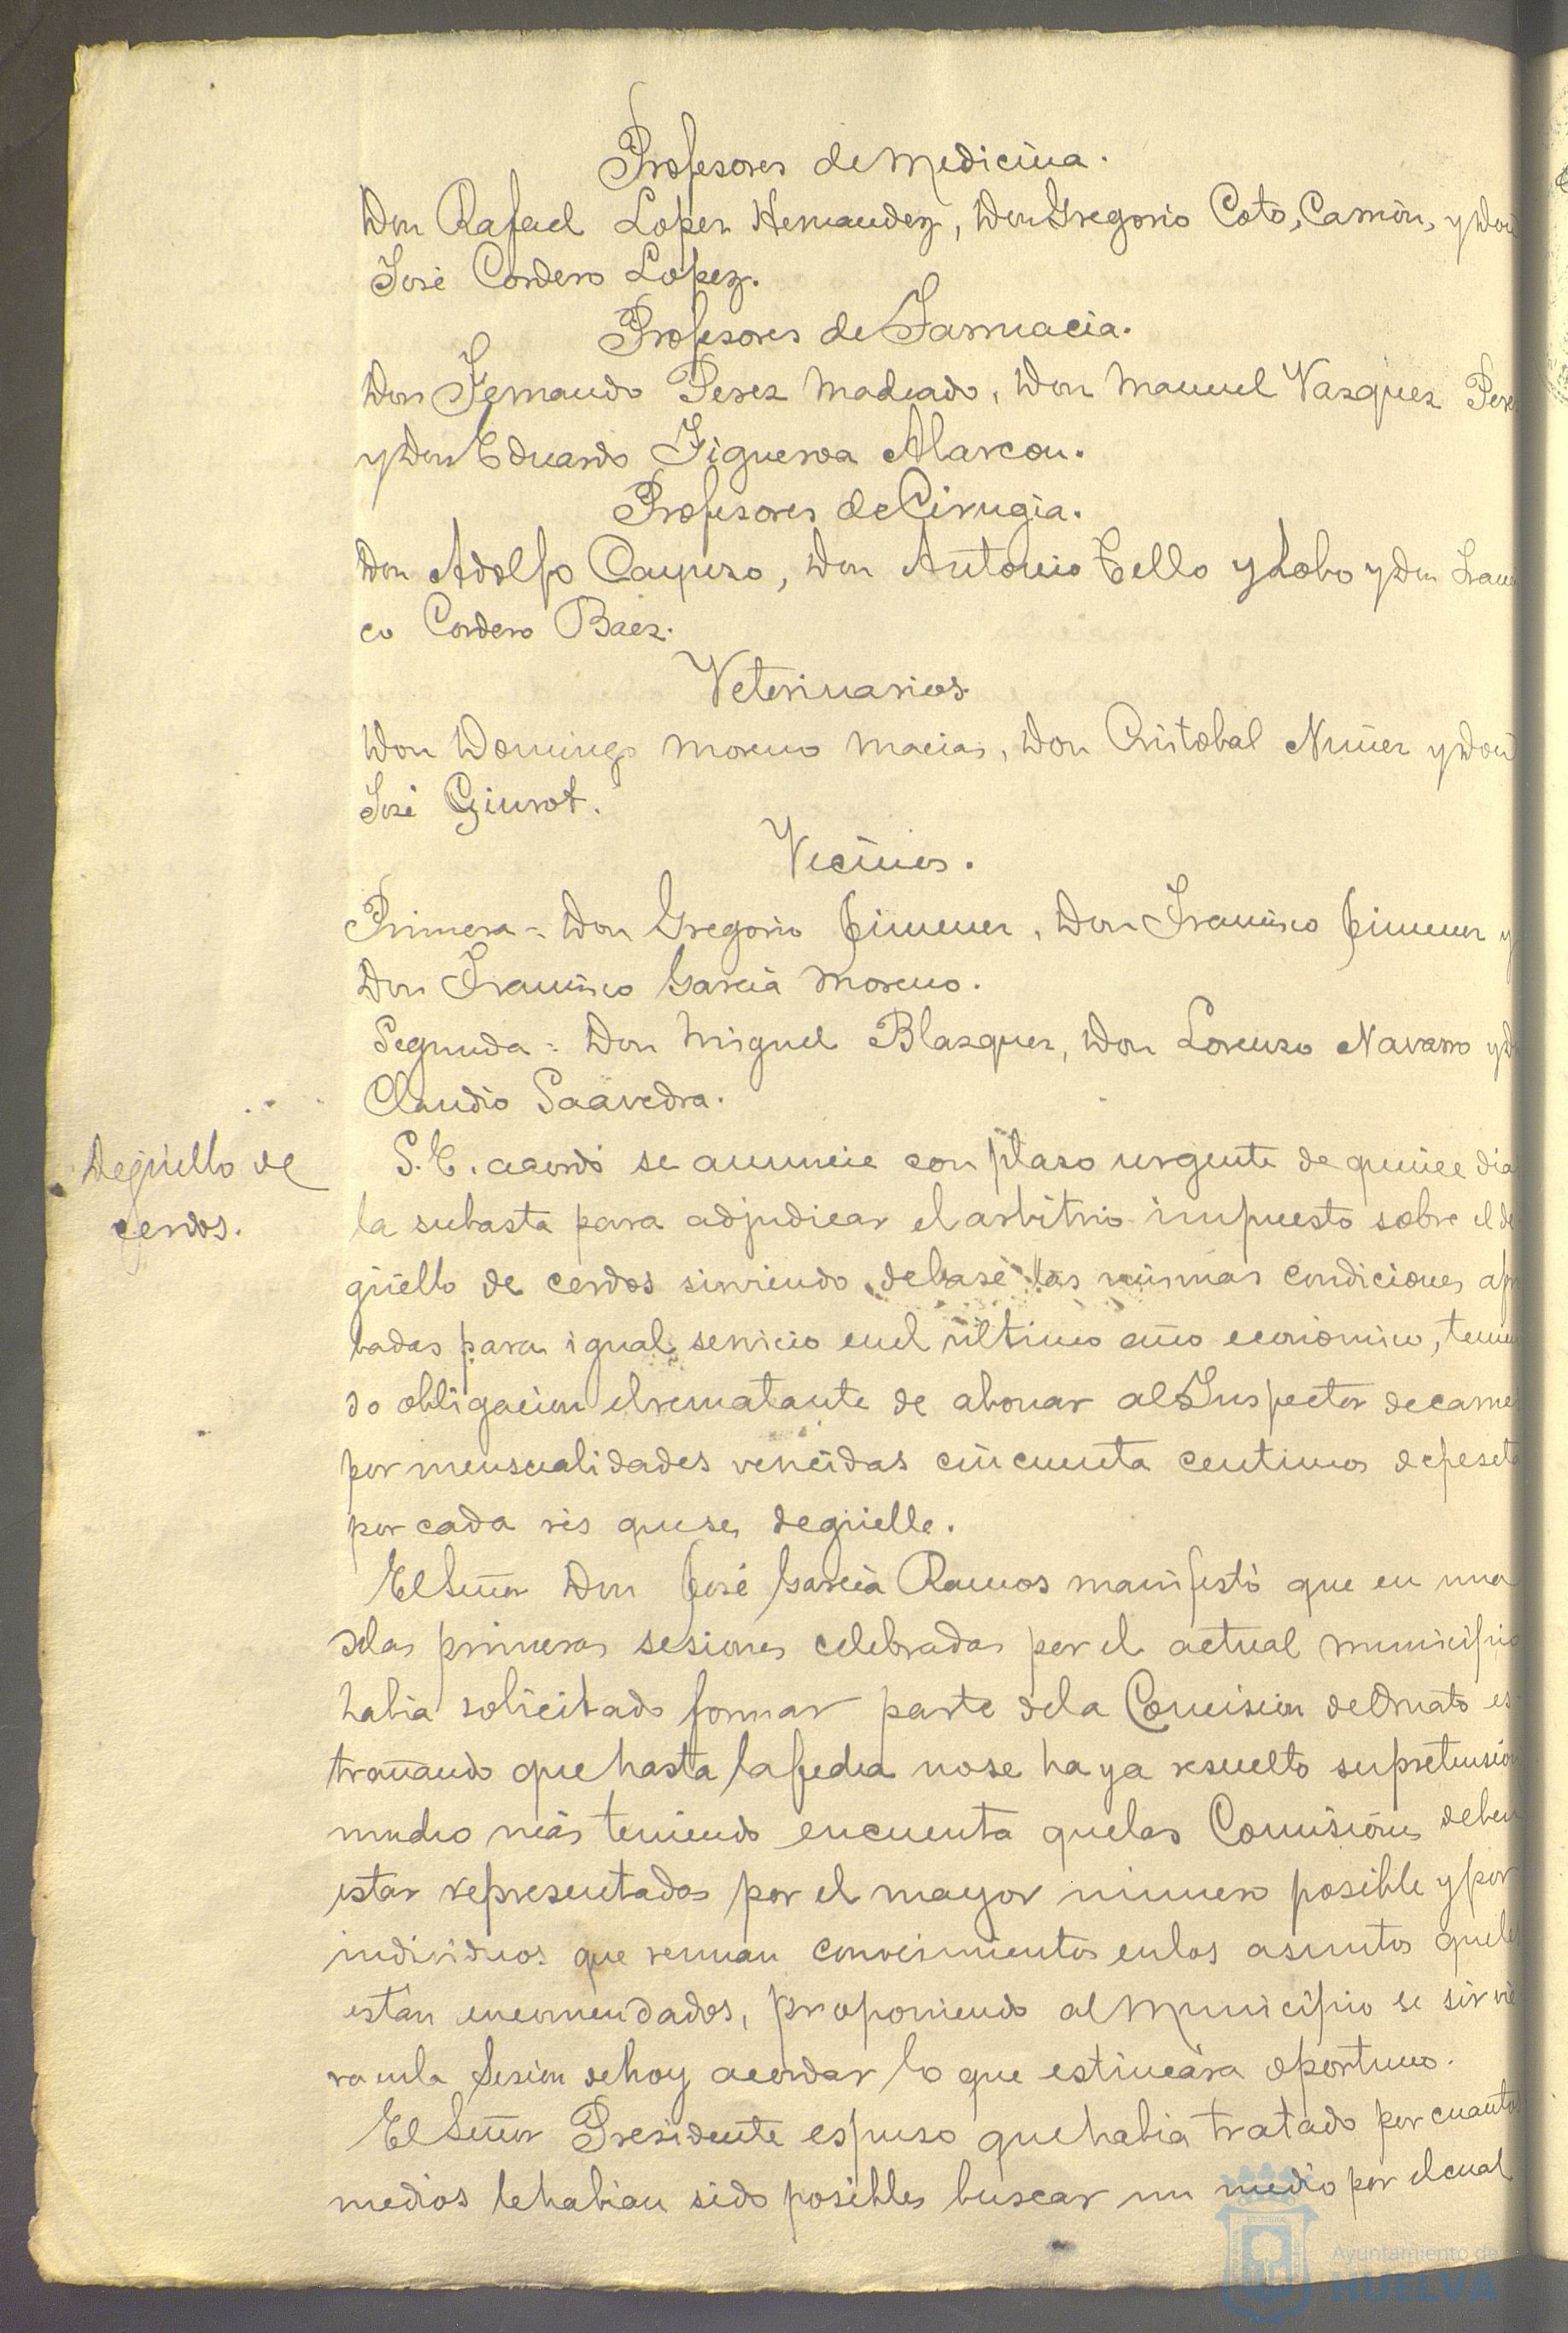 Profesores de Medicina.
Don Rafael Lopez Hernandez, Don Gregorio Coto, Camón, y Don
José Cordero Lopez.
Profesores de Farmacia.
Don Fernando Perez Machado, Don Manuel Vazquez Perez
y Don Eduardo Figueroa Alarcon.
Profesores de Cirugia.
Don Adolfo Cayuso, Don Antonio Tello y Lobo y Don Francis
co Cordero Baez.
Veterinarios
Don Domingo Moreno Macias, Don Cristobal Nuñez y Don
José Ginrot.
Vecinos.
Primera = Don Gregorio Jimenez, Don Francisco Jimenez y
Don Francisco Garcia Moreno.
Segunda = Don Miguel Blazquez, Don Lorenzo Navarro y D
Claudio Saavedra.
Degüello de
cerdos.
S. E. acordó se anuncie con plazo urgente de quince dia
la subasta para adjudicar el arbitrio impuesto sobre el de
güello de cerdos sirviendo de base las mismas condiciones apro
badas para igual servicio en el último año económico, tenien
do obligacion el rematante de abonar al Inspector de carnes
por mensualidades vencidas cincuenta centimos de peseta
por cada res que se degüelle.
El Señor Don José Garcia Ramos manifestó que en una
de las primeras sesiones celebradas por el actual municipio
habia solicitado formar parte de la Comision de Ornato es
trañando que hasta la fecha no se haya resuelto su pretension
mucho más teniendo en cuenta que las Comisiones deben
estar representadas por el mayor número posible y por
individuos que reunan conocimientos en los asuntos que le
están encomendados, proponiendo al Municipio se sirvie
ra en la Sesion de hoy acordar lo que estimára oportuno.
El Señor Presidente espuso que habia tratado por cuantos
medios le habian sido posibles buscar un medio por el cual
Ayuntamiento de
HUELVA